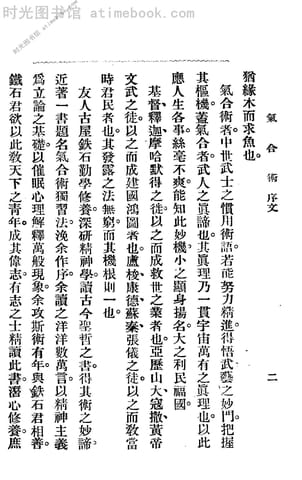 时光图书馆 - atimebook.com
猶緣木而求魚也。
氣合術者。中世武士之慣用術語。若能努力精進。得悟武藝之妙門。把握
其樞機。蓋氣合者。武人之眞諦也。其眞理乃一貫宇宙萬有之眞理也。以此
應人生各事。絲毫不爽。能知此妙機。小之顯身揚名。大之利民福國。
基督釋迦摩哈默得之徒。以之而成救世之業者也。亞歷山大寇撒黃帝
文武之徒。以之而成建國鴻圖者也。盧梭康德蘇秦張儀之徒。以之而敎當
時君民者也。其發露之法無窮。而其機根則一也。
友人古屋鉄石勤學修養。深研精神學。讀古今聖哲之書。得其術之妙諦。
近著一書。題名氣合術獨習法。浼余作序。余讀之洋洋數萬言。以精神主義
爲立論之基礎。以催眠心理解釋萬般現象。余攻斯術有年。與鉄石君相善。
鐵石君欲以此敎天下之靑年。成其偉志。有志之士。精讀此書。潛心修養。庶
氣合術 序文
二
时光图书馆 - atimebook.com